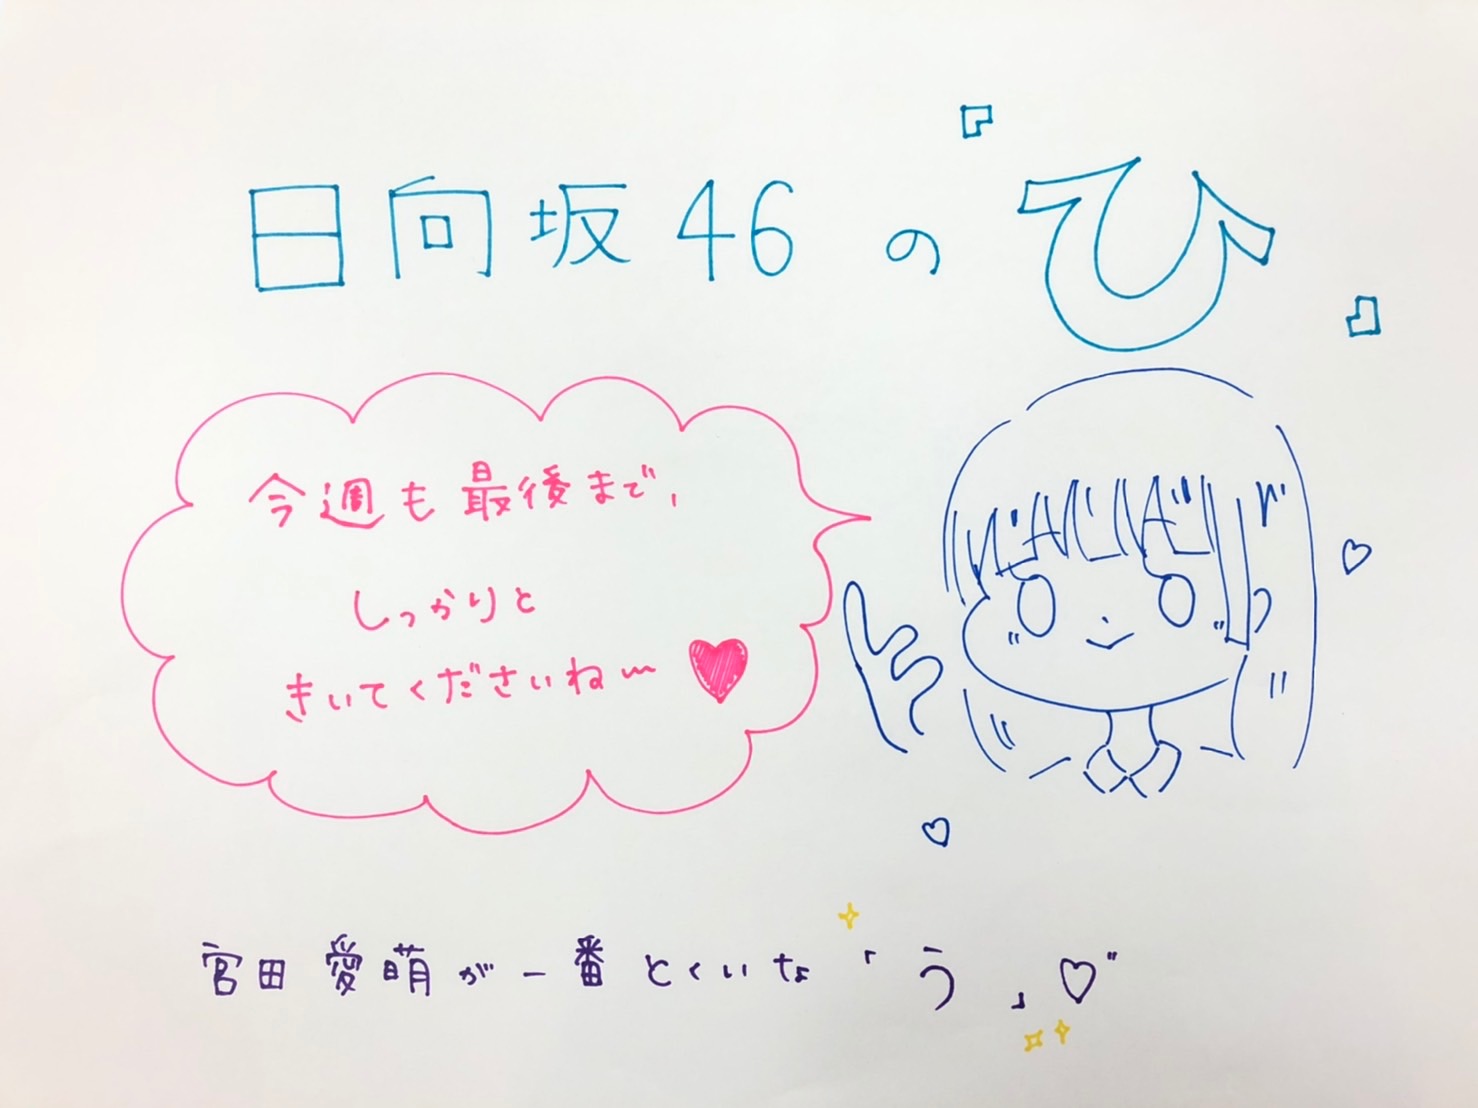 日向坂46の『ひ』
今週も最後まで、
しっかりと
きいてくださいね〜
宮田愛萌が一番とくいな「う」♡"